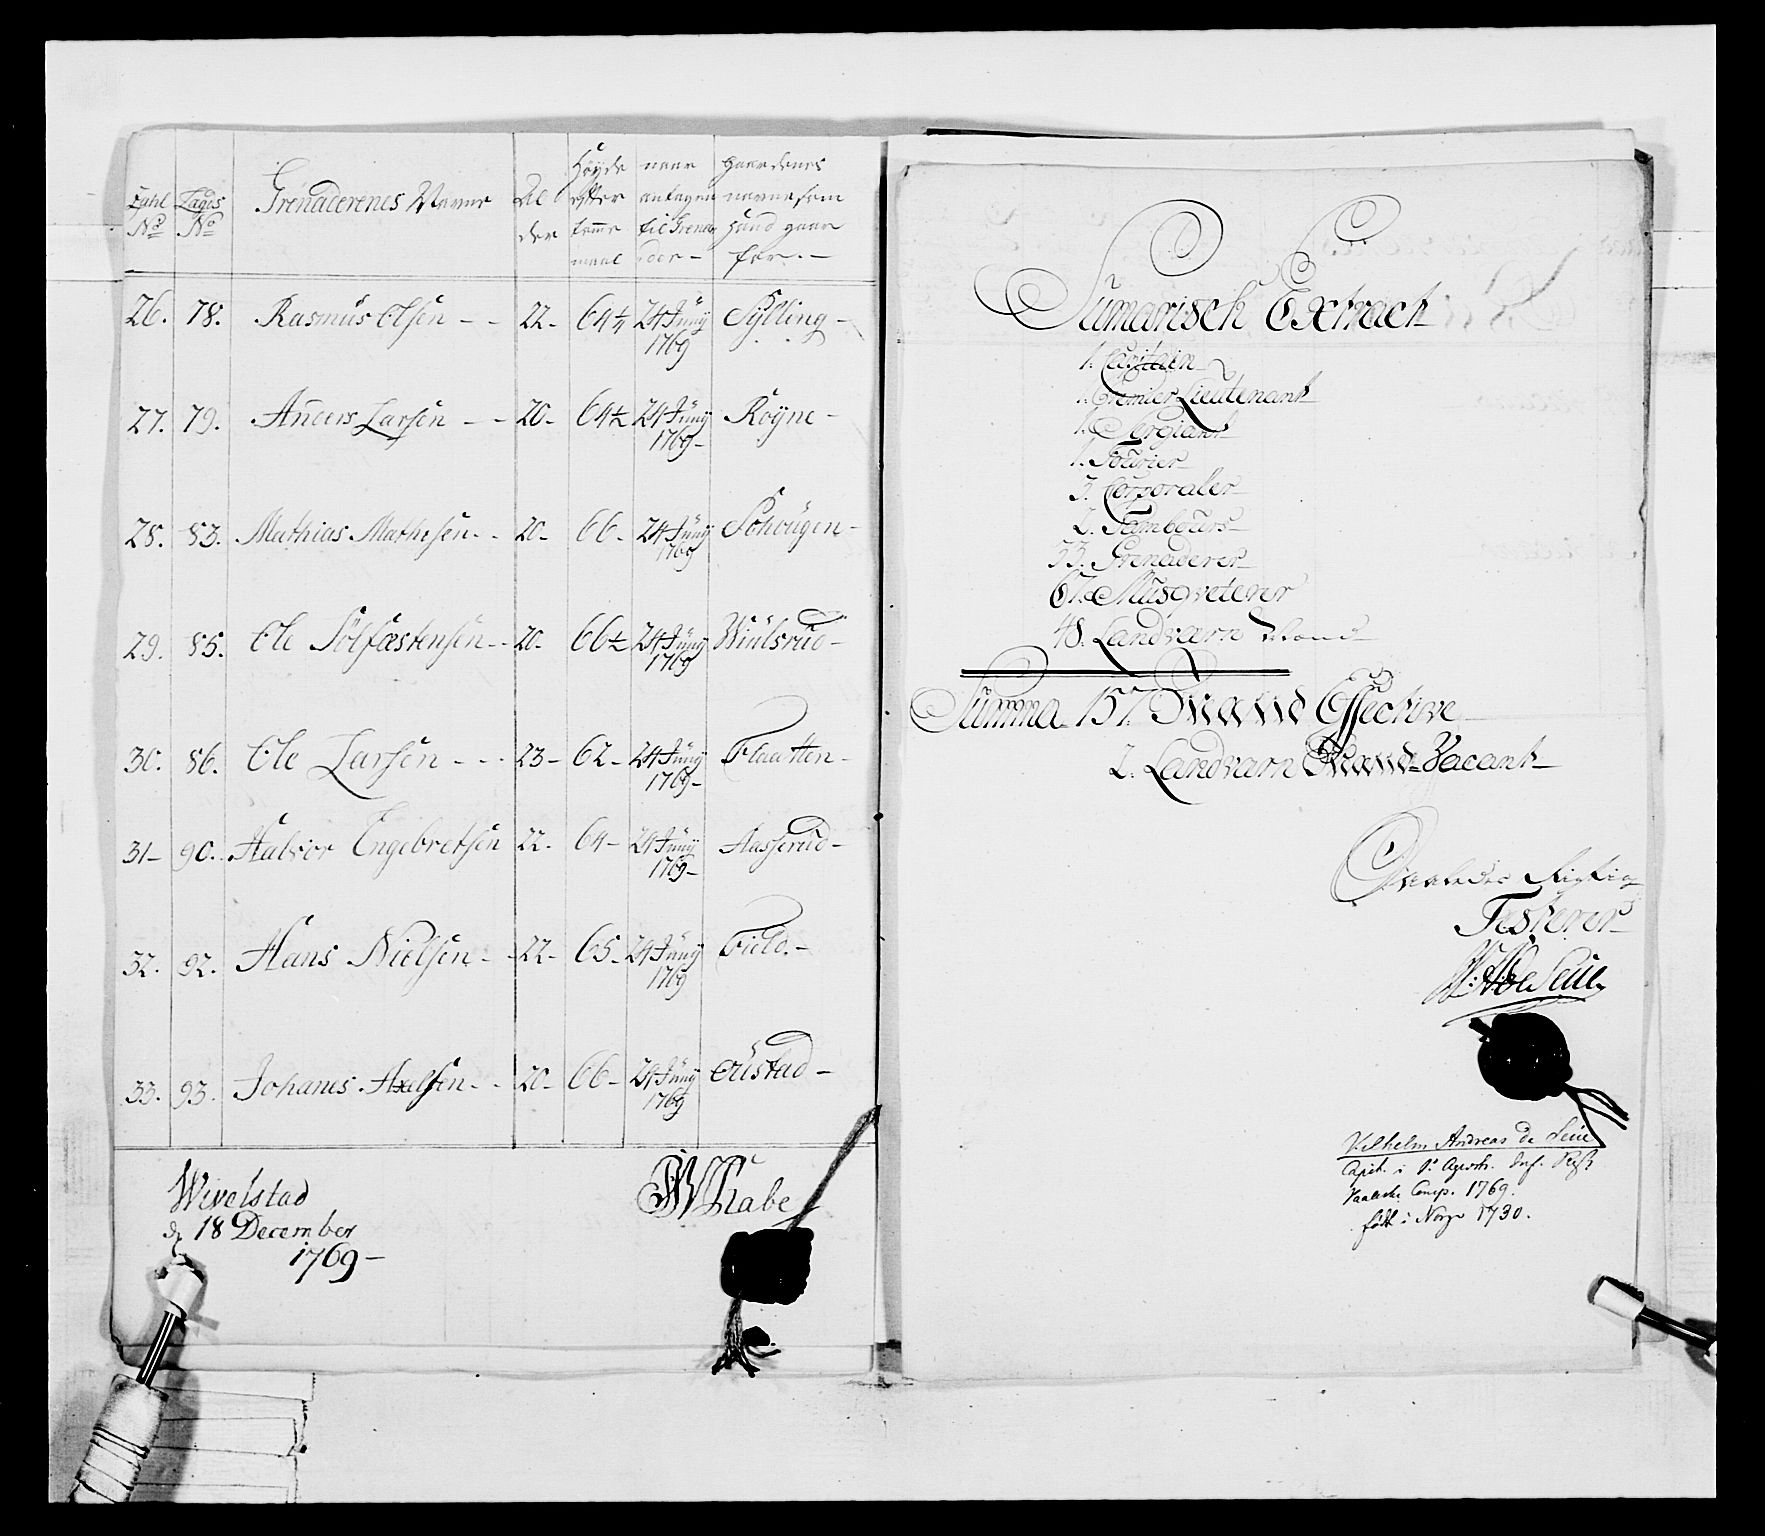 Tahl No Lægds No Grenaderenes Navne Al der Høyde efter tomme maal naar antagen til Grena deer - Gaardenes navne som Hand gaar for. -
26. 78. Rasmus Olsen - - 22- 64¼ 24 Juny 1769 Sylling -
27. 79. Anders Larsen - - 20- 64½ 24 Juny 1769- Röyne -
28. 83. Mathias Mathesen - - 20- 66- 24 Juny 1769 Schougen -
29. 85. Ole Sölfæstensen - - 20- 66½ 24 Juny 1769 Wiulsrud -
30. 86. Ole Larsen - - - 23- 62- 24 Juny 1769- Flaatten -
31- 90. Halvor Engebretsen 22- 64- 24 Juny 1769- Aasserud -
32. 92. Hans Nielsen - - 22- 65- 24 Juny 1769 Field. -
33. 93. Johanes Axelsen - - 20- 66- 24 Juny 1769 Oustad -
Wivelstad
d 18 December
1769 -
Rabe
Sumarisch Extract
1. Capitain
1. Premier Lieutenant
1. Sergiant
1. Fourier
3. Corporaler
2. Tambours
33. Grenaderer
67. Musqveterer
48. Landværn Mand
Summa 157. Mand Effective
2. Landværn Mand Vacant
Rigtig
Testerer
W: A: de Seue
Vilhelm Andreas de Seue
Capit. i 2. Agersh. Inf. Regt.
Comp. 1769.
født i Norge 1730.